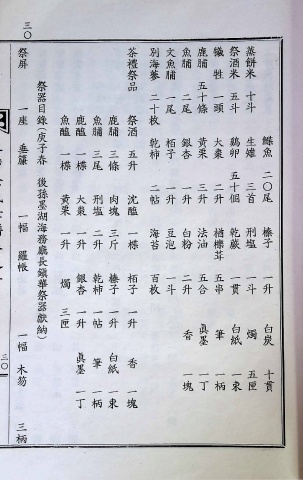 鰱魚 二〇尾 榛子 一升 白炭 十貫
蒸餅米 十斗 生雉 三首 刑塩 一斗 燭 五匣
祭酒米 五斗 鷄卵 五十個 乾蕨 一貫 白紙 一束
犧牲 一頭 大棗 二升 茸 五串 筆 一柄
鹿脯 五十條 黃栗 三升 法油 五合 眞墨 一丁
魚脯 一尾 銀杏 一升 白粉 二升 香 一塊
文魚脯 一尾 栢子 一升 豆泡 一斗
別海蔘 二十枚 乾柿 二帖 海苔 百枚
茶禮祭品 祭酒 五升 沈醢 一楪 栢子 一升 香 一塊
鹿脯 三條 肉塊 三斤 榛子 一升 白紙 一束
魚脯 三尾 刑塩 二升 乾柿 一帖 筆 一柄
鹿醢 一楪 大棗 一升 銀杏 一升 眞墨 一丁
魚醢 一楪 黃栗 一升 燭 三匣
祭器目錄(庚子春 後孫墨湖海務廳長鎭華祭器獻納)
祭屏 一座 垂簾 一幅 羅帳 一幅 木笏 三柄
三〇
三〇